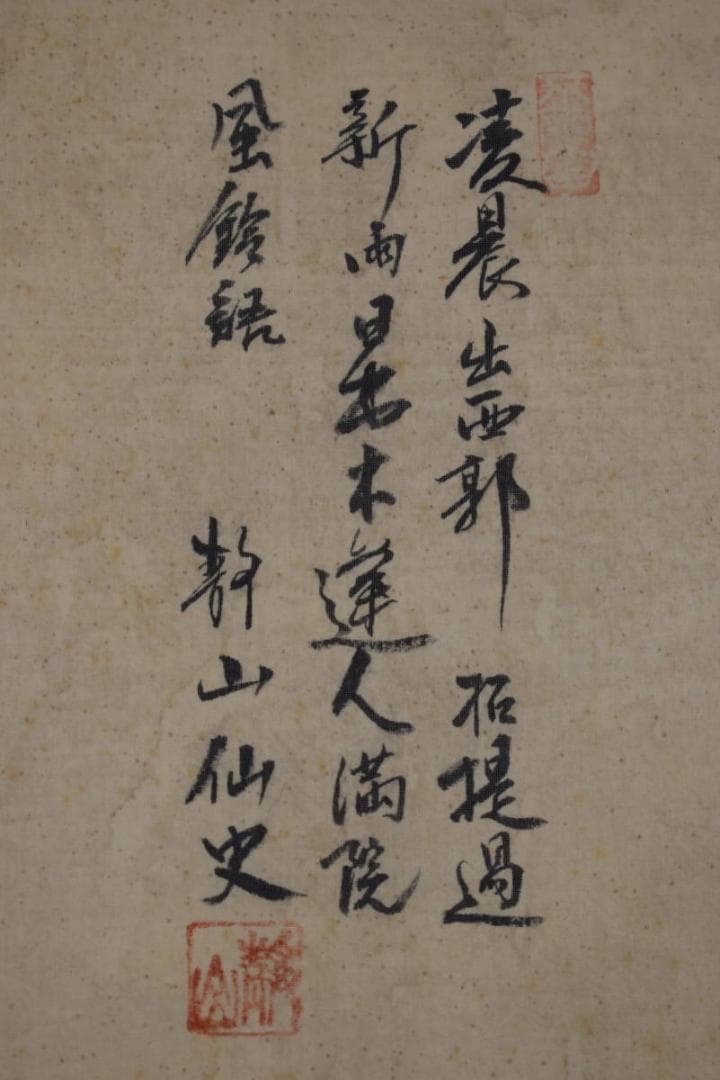 凌晨出西郭 招提過
新雨日逢人滿院
風鈴語 靜山仙史
靜山